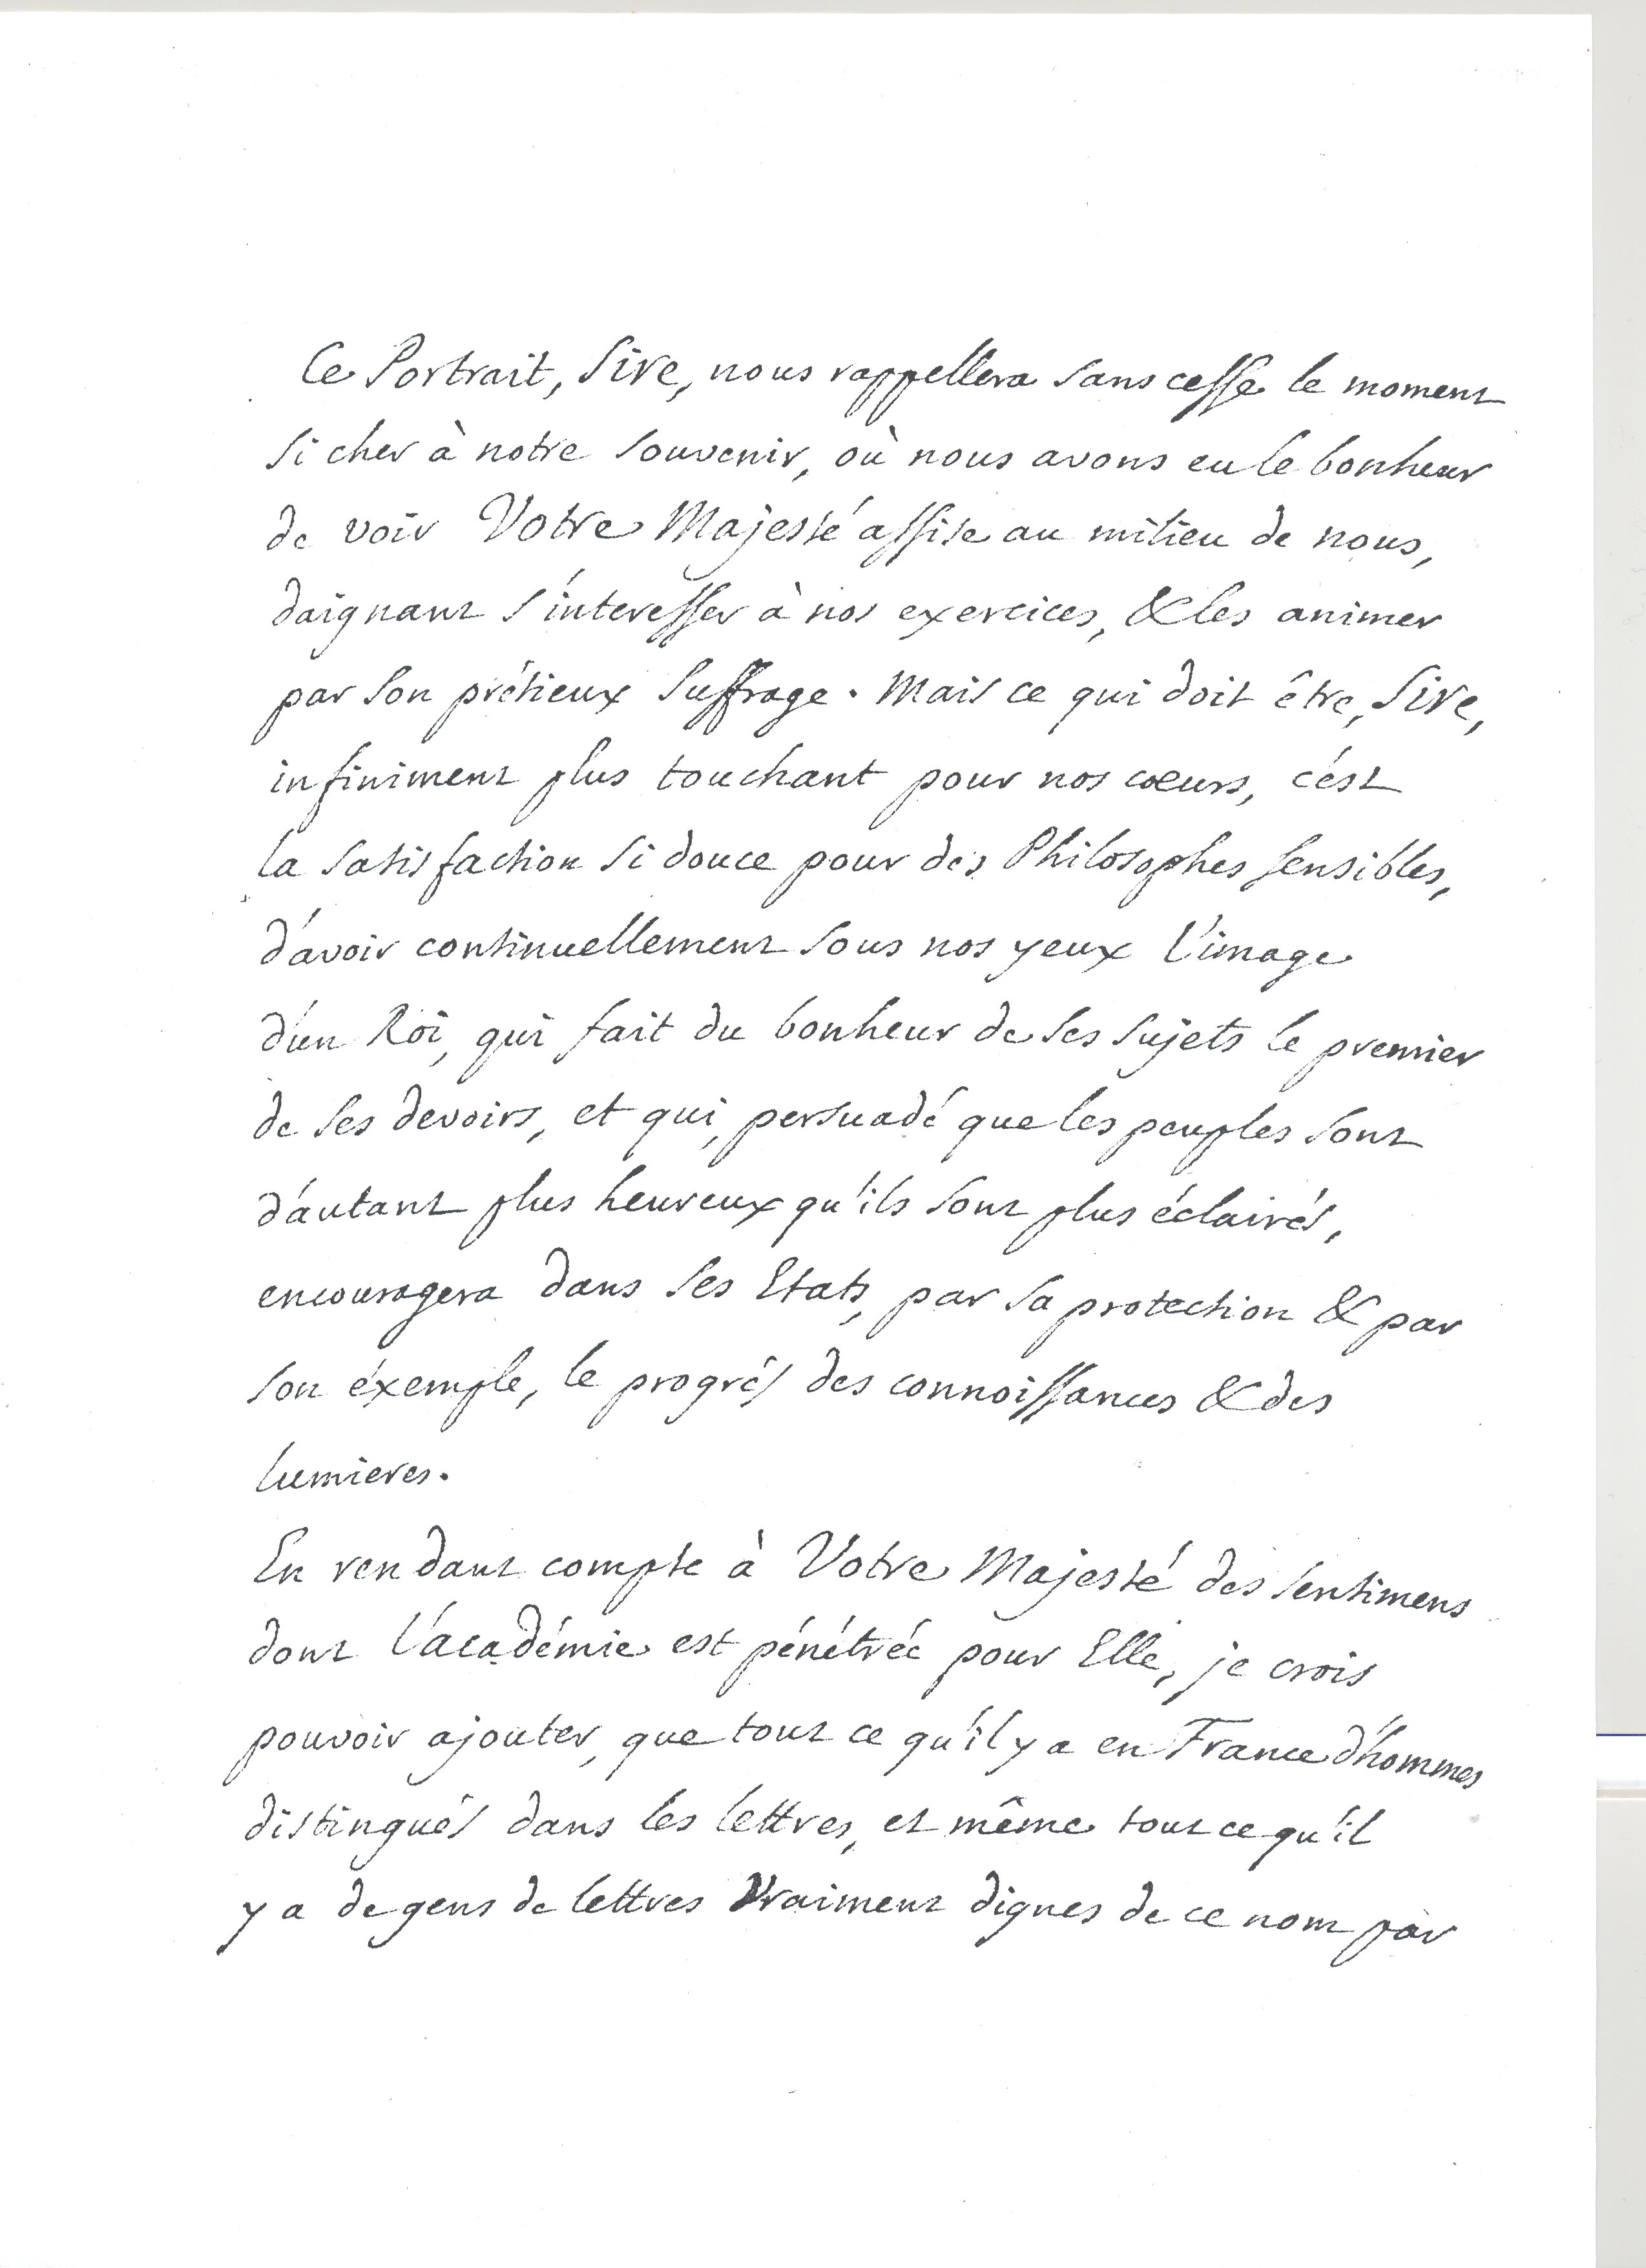 Ce Portrait, Sire, nous rappellera sans cesse le moment
si cher à notre souvenir, où nous avons eu le bonheur
de voir Votre Majesté assise au milieu de nous,
daignant s'interesser à nos exercices, & les animer
par son prétieux suffrage. Mais ce qui doit être, Sire,
infiniment plus touchant pour nos cœurs, c'est
la satisfaction si douce pour des Philosophes sensibles,
d'avoir continuellement sous nos yeux l'image
d'un Roi, qui fait du bonheur de ses sujets le premier
de ses devoirs, et qui, persuadé que les peuples sont
d'autant plus heureux qu'ils sont plus éclairés,
encouragera dans ses Etats, par sa protection & par
son éxemple, le progrès des connoissances & des
lumieres.
En rendant compte à Votre Majesté des sentimens
dont l'académie est pénétrée pour Elle, je crois
pouvoir ajouter, que tout ce qu'il y a en France d'hommes
distingués dans les lettres, et même tout ce qu'il
y a de gens de lettres vraiment dignes de ce nom par